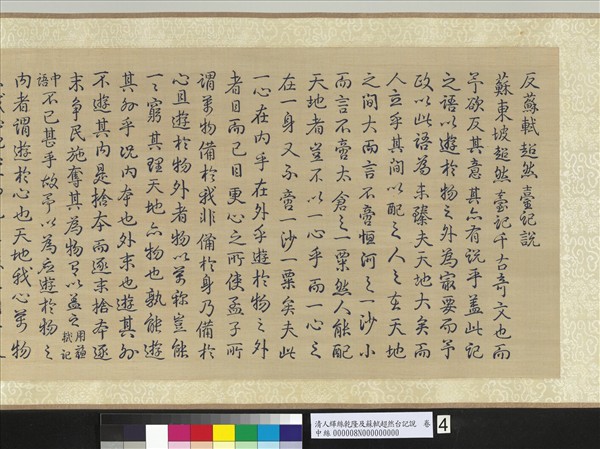 反蘇軾超然臺記說
蘇東坡超然臺記千古奇文也而
予欲反其意其亦有說乎蓋此記
之語以遊於物之外為最要而予
政以此語為未臻夫天地大矣而
人立乎其間以配之人之在天地
之間大而言不啻恒河之一沙小
而言不啻太倉之一粟然人能配
天地者豈不以一心乎而一心之
在一身又不啻一沙一粟矣夫此
一心在內乎在外乎遊於物之外
者目而已目更心之所使孟子所
謂萬物備於我非備於身乃備於
心且遊於物外者物以萬殊豈能
一一窮其理天地亦物也孰能遊
其外乎況內本也外末也遊其外
不遊其內是捨本而逐末捨本逐
末爭民施奪其為物以益之用蘇軾記
中語不已甚乎故予以為應遊於物之
內者謂遊於心也天地我心萬物
清人緙絲乾隆反蘇軾超然台記說 卷
中絲 000008N000000000
4